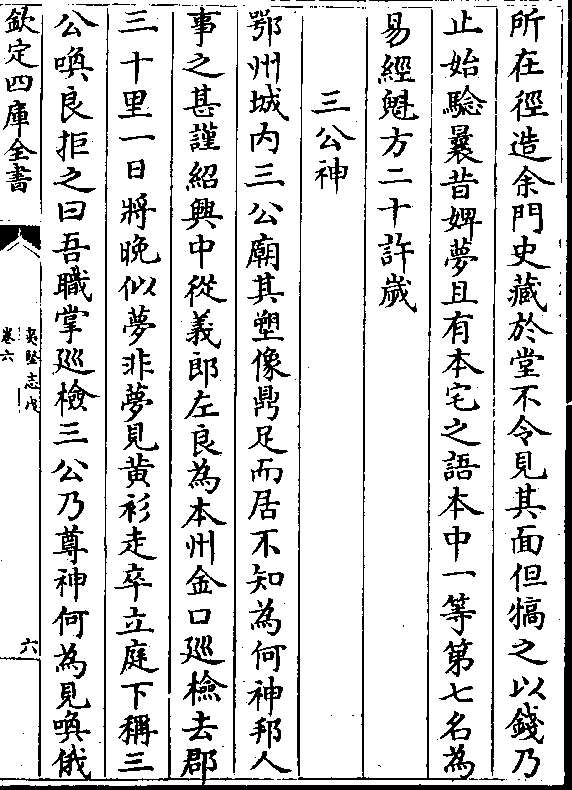 所在徑造余門史藏於堂不令見其面但犒之以錢乃
止始驗曩昔婢夢且有本宅之語本中一等第七名為
易經魁方二十許歲
三公神
鄂州城内三公廟其塑像鼎足而居不知為何神邦人
事之甚謹紹興中從義郎左良為本州金口廵檢去郡
三十里一日將晚似夢非夢見黄衫走卒立庭下稱三
公喚良拒之曰吾職掌廵檢三公乃尊神何為見喚俄
欽定四庫全書
夷堅志戊
卷六
六